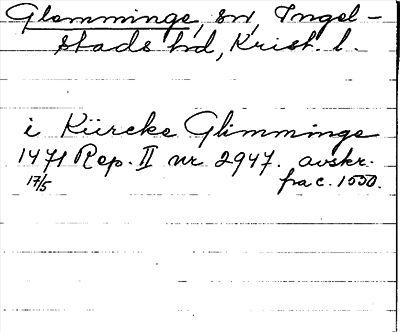 Glemminge, sn, Ingel-
stads hd, Krist. l.
i Kiircke Glimminge
1471 Rep. II nr 2947. avskr.
17/5 fra c. 1550.